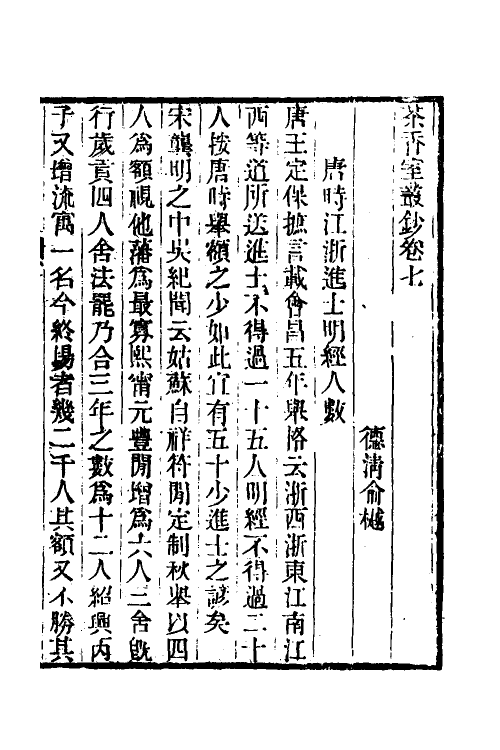 茶香室叢鈔卷七
德清俞樾
唐時江浙進士明經人數
唐王定保摭言載會昌五年舉格云浙西浙東江南江
西等道所送進士不得過一十五人明經不得過二十
人按唐時舉額之少如此宜有五十少進士之諺矣
宋龔明之中吳紀聞云姑蘇自祥符間定制秋舉以四
人爲額視他藩爲最寡熙甯元豐間增爲六人三舍旣
行歲貢四人舍法罷乃合三年之數爲十二人紹興丙
子又增流寓一名今終場者幾二千人其額又不勝其